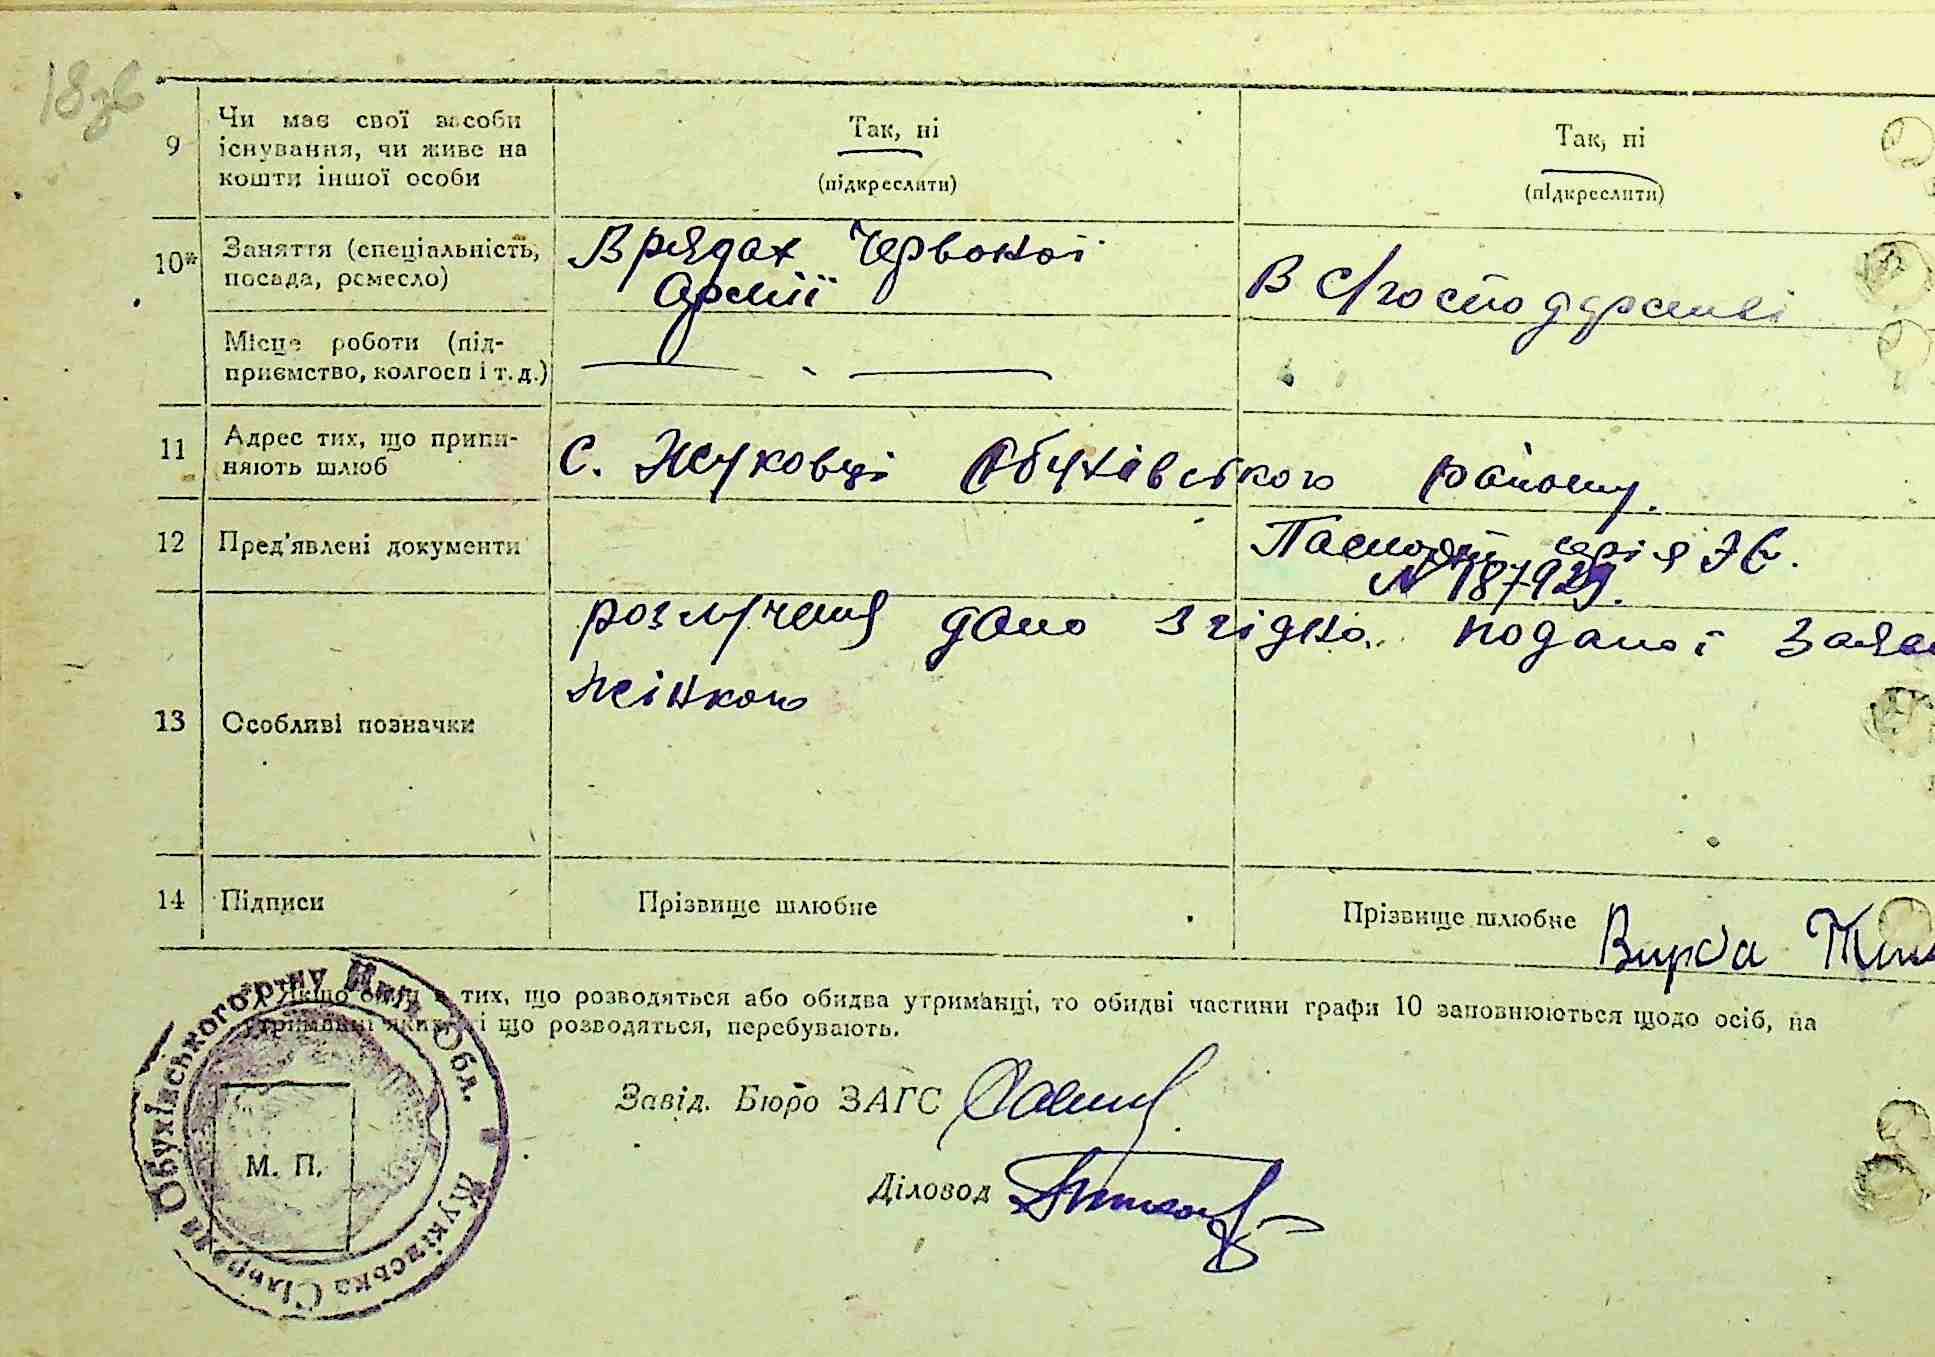 18зв
9 Чи має свої засоби існування, чи живе на кошти іншої особи
Так, ні
(підкреслити)
Так, ні
(підкреслити)
10* Заняття (спеціальність, посада, ремесло)
В рядах Червоної
Армії
В с/господарстві
Місце роботи (підприємство, колгосп і т. д.)
11 Адрес тих, що припиняють шлюб
с. Жуковці Обухівського району.
12 Пред'явлені документи
Паспорт серія ЭЄ.
N 187929.
13 Особливі позначки
розлучення дано згідно поданої
жінкою
14 Підписи
Прізвище шлюбне
Прізвище шлюбне Вирва
Якщо один з тих, що розводяться або обидва утриманці, то обидві частини графи 10 заповнюються щодо осіб, на
утриманні яких ті що розводяться, перебувають.
Завід. Бюро ЗАГС
Діловод
М. П.
Жуківська Сільрада Обухівського р-ну Київ Обл.